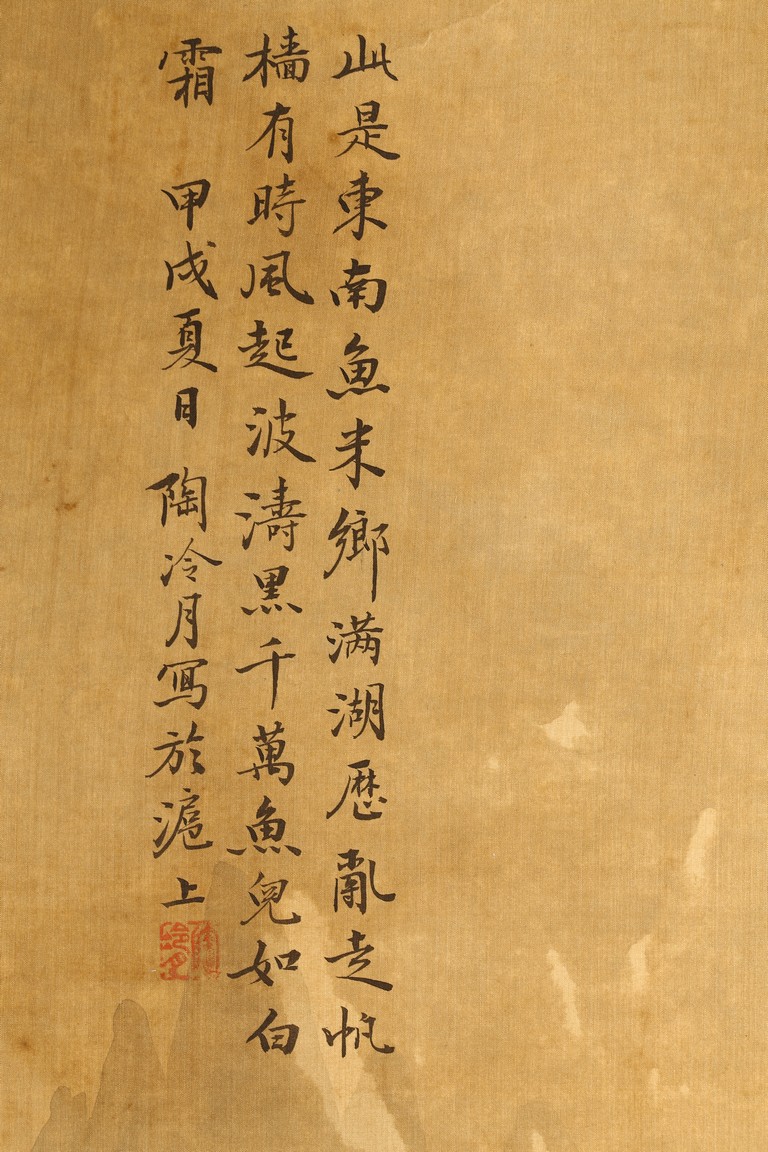 此是東南魚米鄉滿湖歷亂走帆
檣有時風起波濤黑千萬魚兒如白
霜 甲戌夏日 陶冷月寫於滬上